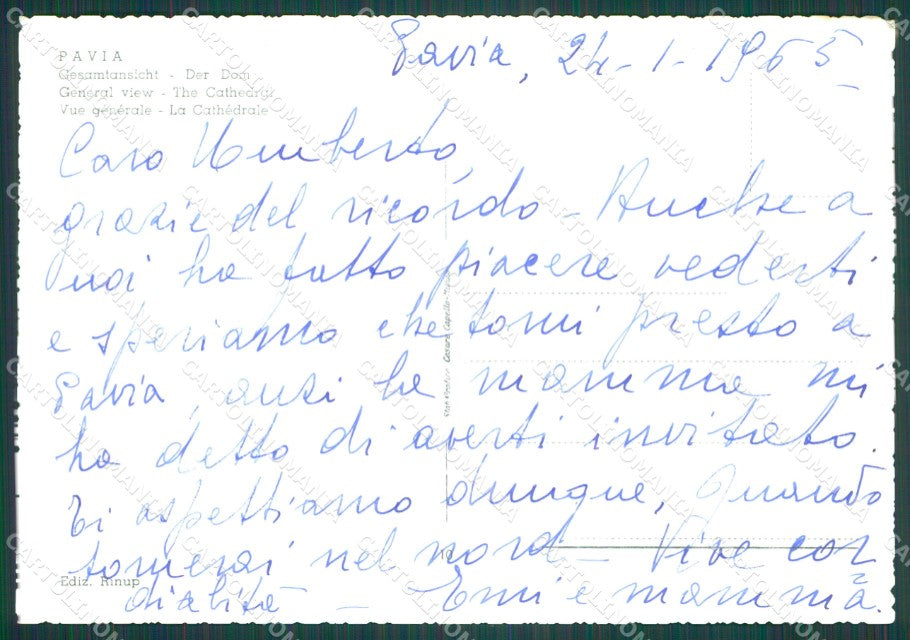 PAVIA
Gesamtansicht - Der Dom
General view - The Cathedral
Vue générale - La Cathédrale
Pavia, 24-1-1965
Caro Umberto,
grazie del ricordo - Anche a
noi ha fatto piacere vederti
e speriamo che torni presto a
Pavia, anzi la mamma mi
ha detto di averti invitato.
Ti aspettiamo dunque, quando
tornerai nel nord - Vive cor
dialità - Emi e mamma.
Ediz. Rinup
CARTOLINOMANIA